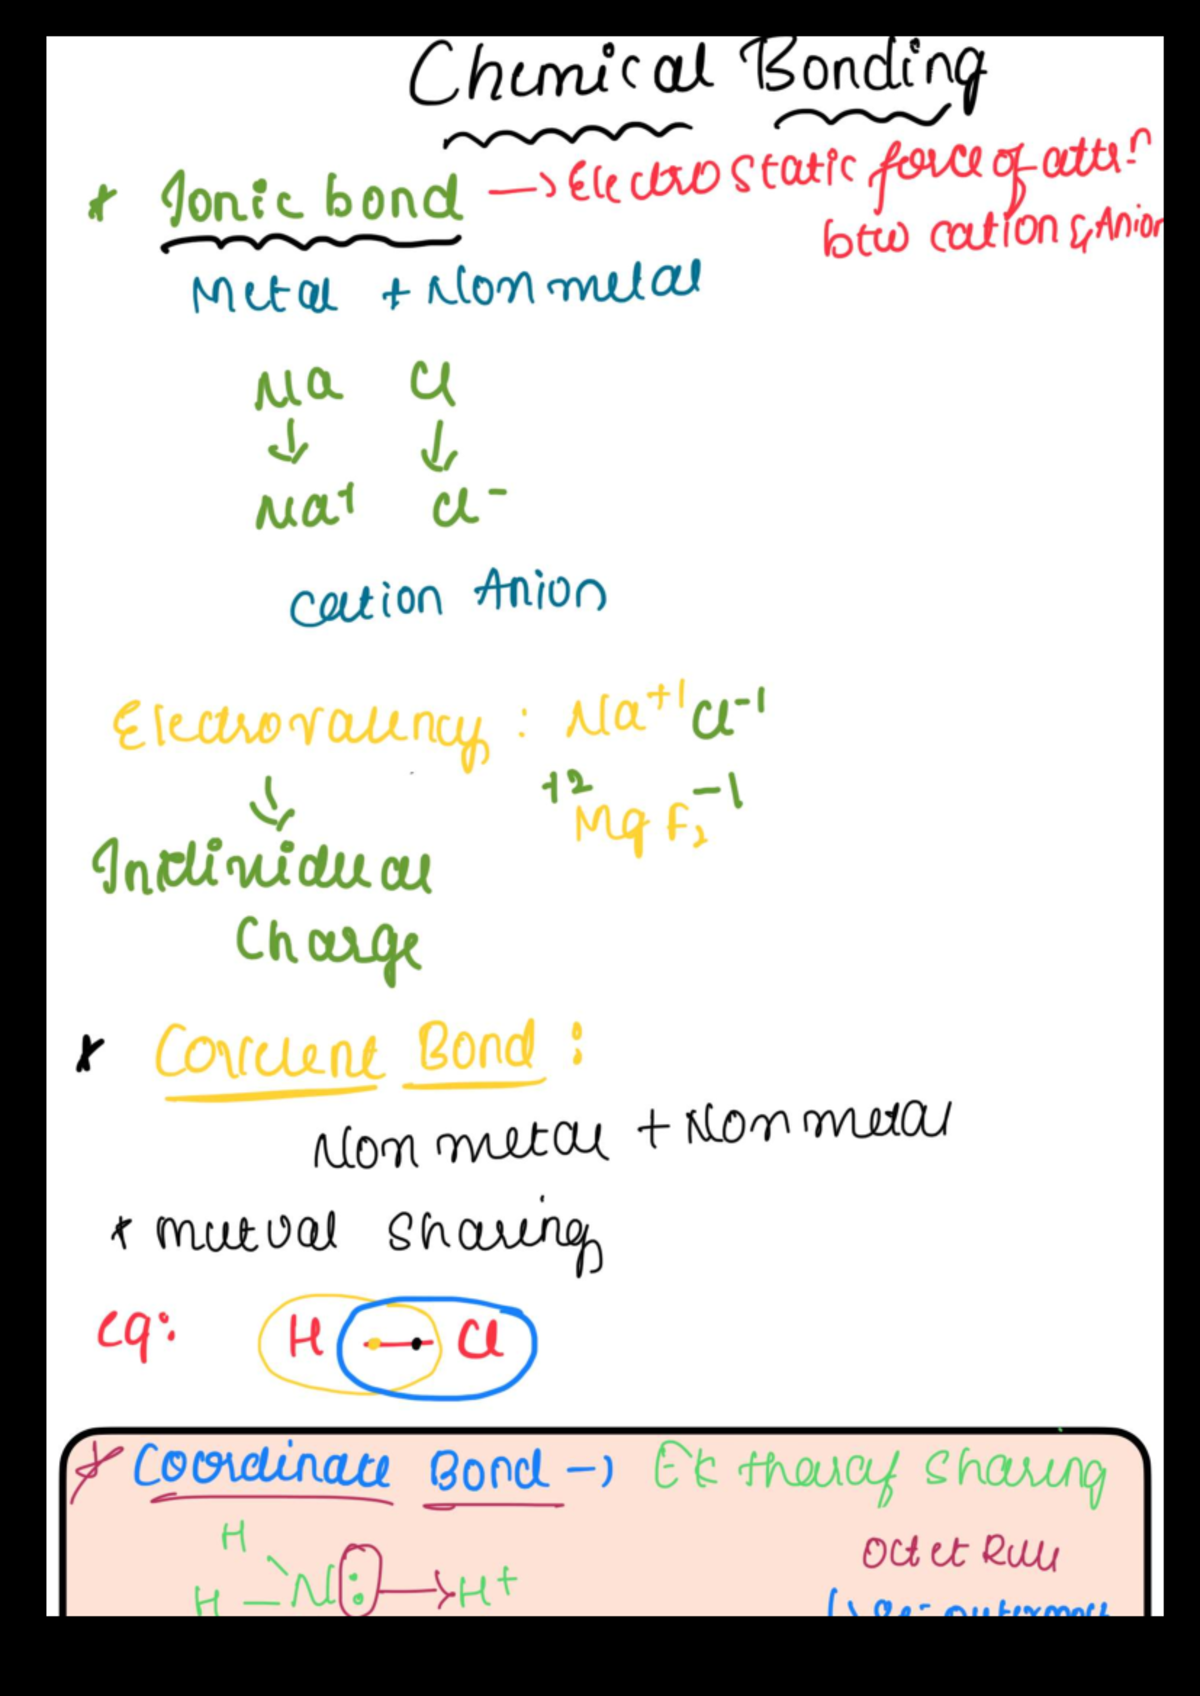 Chemical Bonding
* Ionic bond → Electrostatic force of attr.n
btw cation & Anion
Metal + Nonmetal
Na Cl
↓ ↓
Na+ Cl-
Cation Anion
Electrovalency : Na+1 Cl-1
+2 -1
Mg F2
↓
Individual
Charge
* Covalent Bond :
Non metal + Nonmetal
* mutual sharing
eg: H — Cl
* Coordinate Bond → Ek tharaf sharing
H
Octet Rule
H — N : → H+
8e- outermost